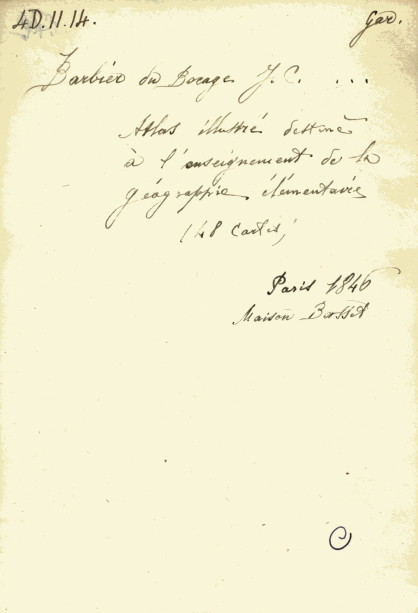 4D.11.14. Gar.
Barbier du Bocage J. C. ...
Atlas illustré destiné
à l'enseignement de la
géographie élémentaire
148 cartes;
Paris 1846
Maison Basset
C